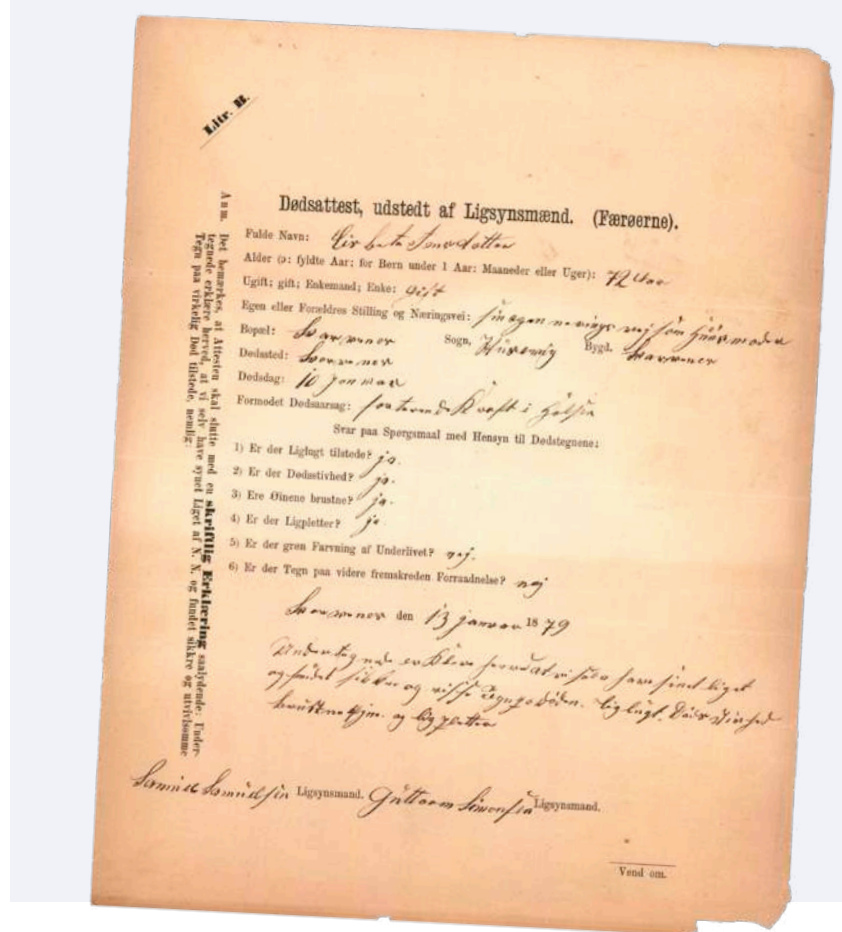 Litr. B.
Anm. Det bemærkes, at Attesten skal slutte med en skriftlig Erklæring saalydende: Under-
tegnede erklære herved, at vi selv have synet Liget af N. N. og fundet sikkre og utvivlsomme
Tegn paa virkelig Død tilstede, nemlig:
Dødsattest, udstedt af Ligsynsmænd. (Færøerne).
Fulde Navn:
Alder (ɔ: fyldte Aar; for Børn under 1 Aar: Maaneder eller Uger): 72 Aar
Ugift; gift; Enkemand; Enke: Gift
Egen eller Forældres Stilling og Næringsvei: sin egen nerings vej som Huusmoder
Bopæl: Sogn, Bygd.
Dødssted:
Dødsdag: 10 Januar
Formodet Dødsaarsag: i
Svar paa Spørgsmaal med Hensyn til Dødstegnene:
1) Er der Liglugt tilstede? ja.
2) Er der Dødsstivhed? ja.
3) Ere Øinene brustne? ja.
4) Er der Ligpletter? ja
5) Er der grøn Farvning af Underlivet? nej.
6) Er der Tegn paa videre fremskreden Forraadnelse? nej
den 13 januar 1879
Undertegnede at vi selv have sinet liget
og og visse Liglugt.
og lig pletter
Samuel Samuelsen Ligsynsmand. Guttorm Simonsen Ligsynsmand.
Vend om.